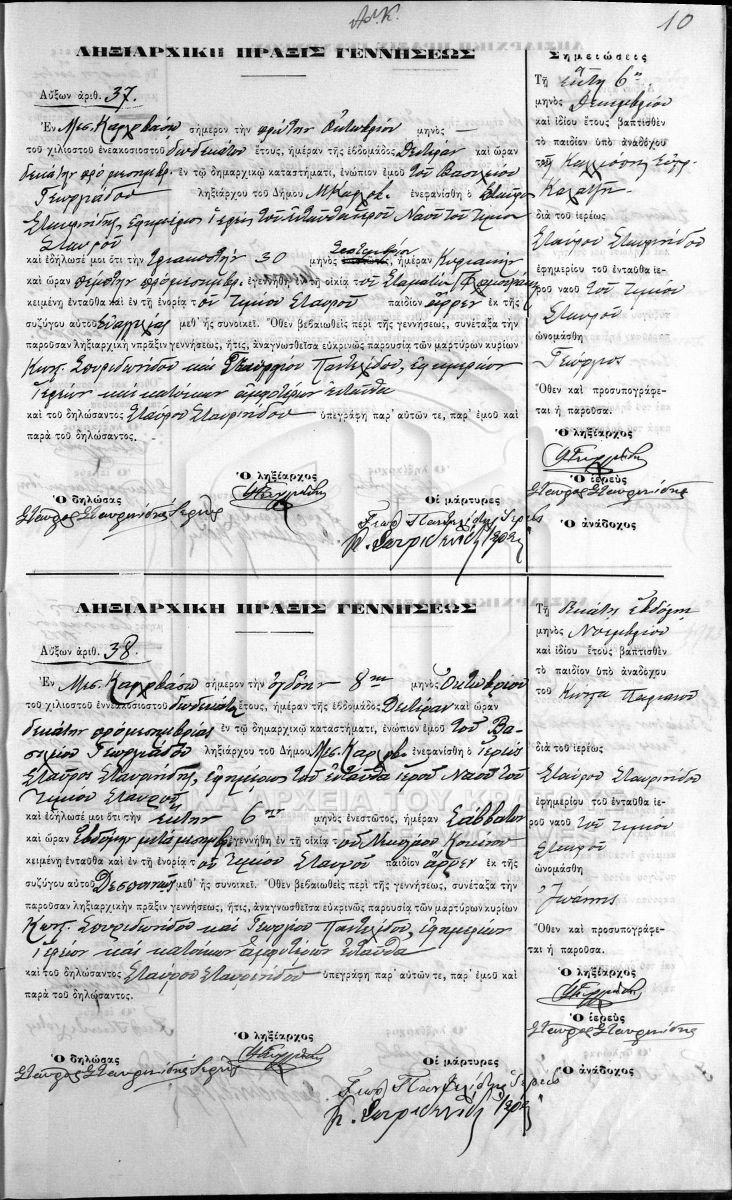 10
ΛΗΞΙΑΡΧΙΚΗ ΠΡΑΞΙΣ ΓΕΝΝΗΣΕΩΣ
Αὔξων ἀριθ. 37.
Ἐν Μεσ. Καρχβασίῳ σήμερον τὴν πρώτην Ὀκτωβρίου μηνὸς —
τοῦ χιλιοστοῦ ἐνεακοσιοστοῦ δωδεκάτου ἔτους, ἡμέραν τῆς ἑβδομάδος Δευτέραν καὶ ὥραν
δεκάτην πρὸ μεσημβρ. ἐν τῷ δημαρχικῷ καταστήματι, ἐνώπιον ἐμοῦ τοῦ Βασιλείου
Γεωργιάδου ληξιάρχου τοῦ Δήμου Μ. Καρλοβ. ἐνεφανίσθη ὁ Σταῦρος
Σταυρινίδης, ἐφημέριος Ἱερεὺς τοῦ ἐνταῦθα ἱεροῦ Ναοῦ τοῦ Τιμίου
Σταυροῦ
καὶ ἐδήλωσέ μοι ὅτι τὴν τριακοστὴν 30 μηνὸς Σεπτεμβρίου, ἡμέραν Κυριακὴν
καὶ ὥραν πέμπτην πρὸ μεσημβρ. ἐγεννήθη ἐν τῇ οἰκίᾳ τοῦ Σταματίου
κειμένῃ ἐνταῦθα καὶ ἐν τῇ ἐνορίᾳ τοῦ Τιμίου Σταυροῦ παιδίον ἄρρεν ἐκ τῆς
συζύγου αὐτοῦ Εὐαγγελίας μεθ' ἧς συνοικεῖ. Ὅθεν βεβαιωθεὶς περὶ τῆς γεννήσεως, συνέταξα τὴν
παροῦσαν ληξιαρχικὴν πρᾶξιν γεννήσεως, ἥτις, ἀναγνωσθεῖσα εὐκρινῶς παρουσίᾳ τῶν μαρτύρων κυρίων
Κωνσ. Σπυριδωνίδου καὶ Γεωργίου Παντελίδου, ἐφημερίων
Ἱερέων καὶ κατοίκων ἀμφοτέρων ἐνταῦθα
καὶ τοῦ δηλώσαντος Σταύρου Σταυρινίδου ὑπεγράφη παρ' αὐτῶν τε, παρ' ἐμοῦ καὶ
παρὰ τοῦ δηλώσαντος.
Ὁ δηλώσας
Σταῦρος Σταυρινίδης Ἱερεὺς
Ὁ ληξίαρχος
Οἱ μάρτυρες
Γεωρ. Παντελίδης Ἱερεὺς
Κ. Σπυριδωνίδης Ἱερεὺς
Σημειώσεις
Τῇ ἕκτῃ 6ῃ
μηνὸς Δεκεμβρίου
καὶ ἰδίου ἔτους βαπτισθὲν
τὸ παιδίον ὑπὸ ἀναδόχου
Καλλιόπης
διὰ τοῦ ἱερέως
Σταύρου Σταυρινίδου
ἐφημερίου τοῦ ἐνταῦθα ἱε-
ροῦ ναοῦ τοῦ Τιμίου
Σταυροῦ
ὠνομάσθη
Γεώργιος
Ὅθεν καὶ προσυπογράφε-
ται ἡ παροῦσα.
Ὁ ληξίαρχος
Ὁ ἱερεὺς
Σταῦρος Σταυρινίδης
Ὁ ἀνάδοχος
ΛΗΞΙΑΡΧΙΚΗ ΠΡΑΞΙΣ ΓΕΝΝΗΣΕΩΣ
Αὔξων ἀριθ. 38.
Ἐν Μεσ. Καρχβασίῳ σήμερον τὴν ὀγδόην 8ην μηνὸς Ὀκτωβρίου
τοῦ χιλιοστοῦ ἐννεακοσιοστοῦ δωδεκάτου ἔτους, ἡμέραν τῆς ἑβδομάδος Δευτέραν καὶ ὥραν
δεκάτην πρὸ μεσημβρίας ἐν τῷ δημαρχικῷ καταστήματι, ἐνώπιον ἐμοῦ τοῦ Βα-
σιλείου Γεωργιάδου ληξιάρχου τοῦ Δήμου Μεσ. Καρλοβ. ἐνεφανίσθη ὁ Ἱερεὺς
Σταῦρος Σταυρινίδης, ἐφημέριος τοῦ ἐνταῦθα ἱεροῦ Ναοῦ τοῦ
Τιμίου Σταυροῦ
καὶ ἐδήλωσέ μοι ὅτι τὴν ἕκτην 6ην μηνὸς ἐνεστῶτος, ἡμέραν Σάββατον
καὶ ὥραν ἑβδόμην μετὰ μεσημβρ. ἐγεννήθη ἐν τῇ οἰκίᾳ τοῦ Νικολάου
κειμένῃ ἐνταῦθα καὶ ἐν τῇ ἐνορίᾳ τοῦ Τιμίου Σταυροῦ παιδίον ἄρρεν ἐκ τῆς
συζύγου αὐτοῦ Δεσποίνης μεθ' ἧς συνοικεῖ. Ὅθεν βεβαιωθεὶς περὶ τῆς γεννήσεως, συνέταξα τὴν
παροῦσαν ληξιαρχικὴν πρᾶξιν γεννήσεως, ἥτις, ἀναγνωσθεῖσα εὐκρινῶς παρουσίᾳ τῶν μαρτύρων κυρίων
Κωνσ. Σπυριδωνίδου καὶ Γεωργίου Παντελίδου, ἐφημερίων
Ἱερέων καὶ κατοίκων ἀμφοτέρων ἐνταῦθα
καὶ τοῦ δηλώσαντος Σταύρου Σταυρινίδου ὑπεγράφη παρ' αὐτῶν τε, παρ' ἐμοῦ καὶ
παρὰ τοῦ δηλώσαντος.
Ὁ δηλώσας
Σταῦρος Σταυρινίδης Ἱερεὺς
Ὁ ληξίαρχος
Οἱ μάρτυρες
Γεωρ. Παντελίδης Ἱερεὺς
Κ. Σπυριδωνίδης Ἱερεὺς
Τῇ εἰκοστῇ ἑβδόμῃ
μηνὸς Νοεμβρίου
καὶ ἰδίου ἔτους βαπτισθὲν
τὸ παιδίον ὑπὸ ἀναδόχου
τοῦ
διὰ τοῦ ἱερέως
Σταύρου Σταυρινίδου
ἐφημερίου τοῦ ἐνταῦθα ἱε-
ροῦ ναοῦ τοῦ Τιμίου
Σταυροῦ
ὠνομάσθη
Ἰωάννης
Ὅθεν καὶ προσυπογράφε-
ται ἡ παροῦσα.
Ὁ ληξίαρχος
Ὁ ἱερεὺς
Σταῦρος Σταυρινίδης
Ὁ ἀνάδοχος